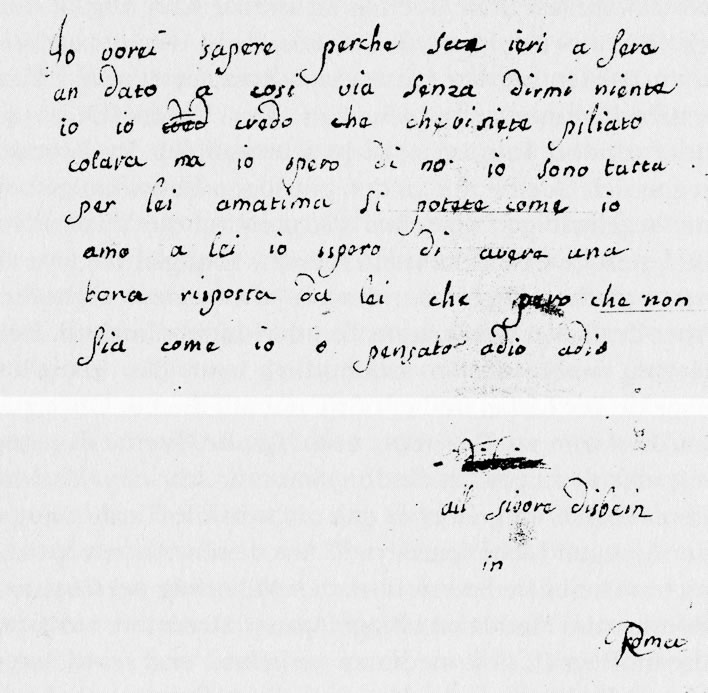 Io vorei sapere perche sete ieri a sera
an dato a cosi via senza dirmi niente
io io credo che che vi siete piliato
colara ma io spero di no io sono tutta
per lei amatima si potete come io
amo a lei io ispero di avere una
bona risposta da lei che pero che non
sia come io o pensato adio adio
al sivore
in
Roma